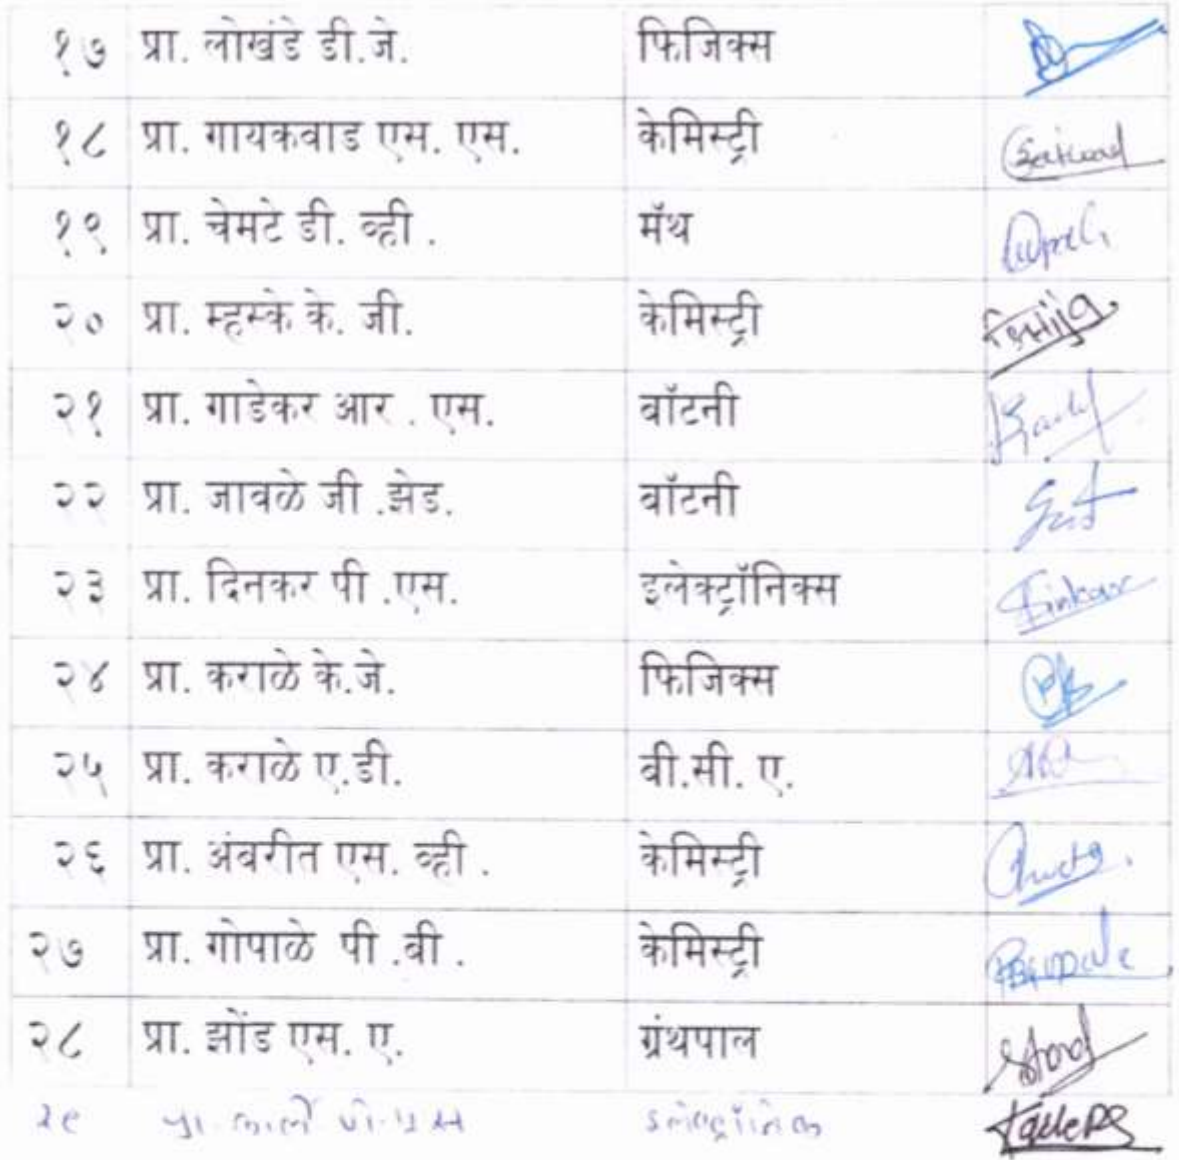 १७ प्रा. लोखंडे डी.जे. फिजिक्स
१८ प्रा. गायकवाड एस. एस. केमिस्ट्री
१९ प्रा. चेमटे डी. व्ही . मॅथ
२० प्रा. म्हस्के के. जी. केमिस्ट्री
२१ प्रा. गाडेकर आर . एस. बॉटनी
२२ प्रा. जावळे जी .झेड. बॉटनी
२३ प्रा. दिनकर पी .एस. इलेक्ट्रॉनिक्स Dinkar
२४ प्रा. कराळे के.जे. फिजिक्स
२५ प्रा. कराळे ए.डी. बी.सी. ए.
२६ प्रा. अंबरीत एस. व्ही . केमिस्ट्री
२७ प्रा. गोपाळे पी .बी . केमिस्ट्री
२८ प्रा. झोंड एस. ए. ग्रंथपाल
२९ प्रा.